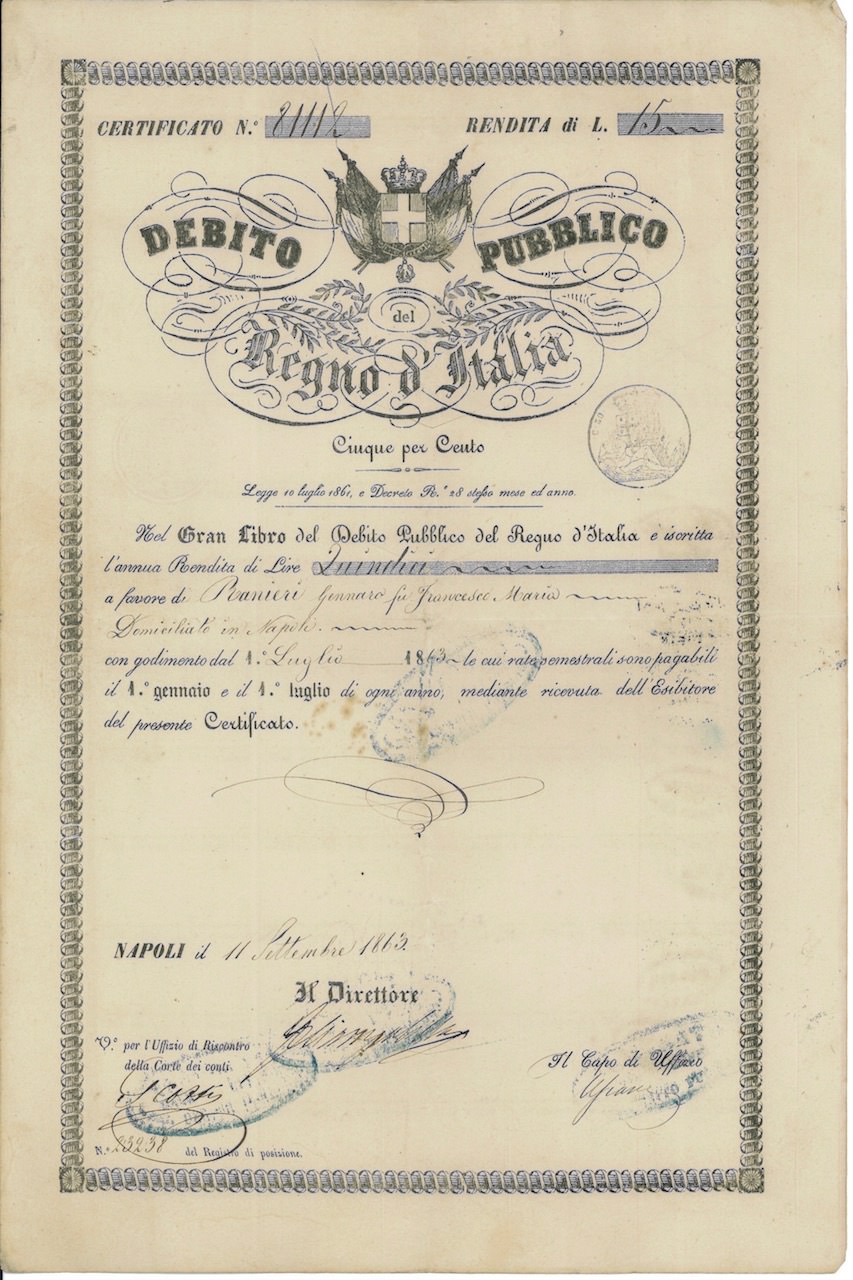 CERTIFICATO N.º 21112 RENDITA di L. 15
DEBITO PUBBLICO
del
Regno d'Italia
Cinque per Cento
Legge 10 luglio 1861, e Decreto R.º 28 stesso mese ed anno.
Nel Gran Libro del Debito Pubblico del Regno d'Italia è iscritta
l'annua Rendita di Lire Quindici
a favore di Ranieri Gennaro fu Francesco Maria
Domiciliato in Napoli.
con godimento dal 1.º Luglio 1863 le cui rate semestrali sono pagabili
il 1.º gennaio e il 1.º luglio di ogni anno, mediante ricevuta dell'Esibitore
del presente Certificato.
NAPOLI il 11 Settembre 1863.
Il Direttore
V.º per l'Uffizio di Riscontro
della Corte dei conti
Il Capo di Uffizio
N.º 23238 del Registro di posizione.